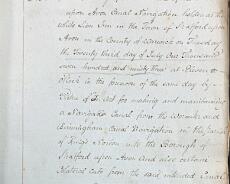 upon Avon Canal Navigation holden at the
White Lion Inn in the Town of Stratford upon
Avon in the County of Warwick on Tuesday
the Twenty third day of July One Thousand
seven hundred and ninety three at Eleven o'
Clock in the forenoon of the same day by
Virtue of the Act for making and maintaining
a Navigable Canal from the Worcester and
Birmingham Canal Navigation in the parish
of Kings Norton into the Borough of
Stratford upon Avon and also certain
Collateral Cuts from the said intended Canal